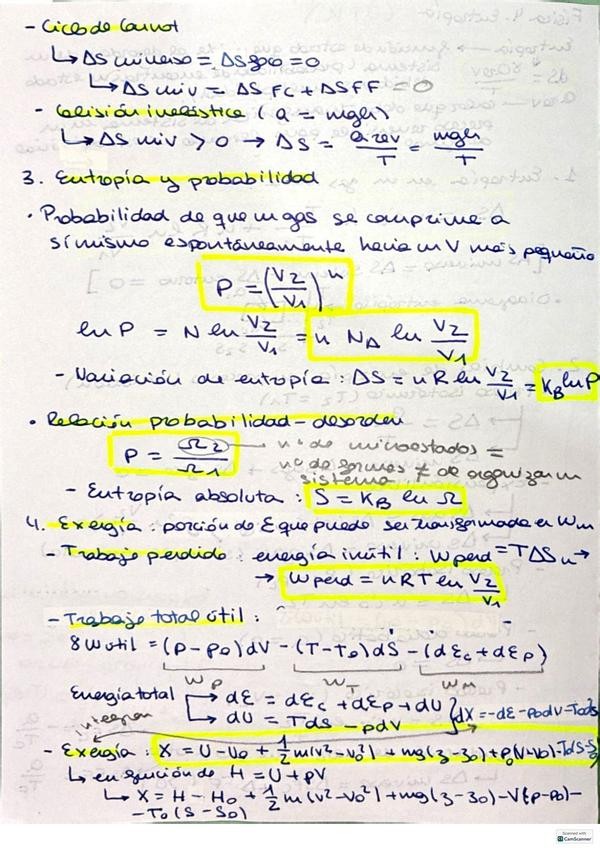 - Ciclo de Carnot
↳ ΔS universo = ΔS gas = 0
↳ ΔS univ = ΔS FC + ΔS FF = 0
- Colisión inelástica (Q = mgh)
↳ ΔS univ > 0 → ΔS = Q rev / T = mgh / T
3. Entropía y probabilidad
• Probabilidad de que un gas se comprime a
sí mismo espontáneamente hacia un V más pequeño
P = (V2/V1)^N
ln P = N ln V2/V1 = n NA ln V2/V1
- Variación de entropía : ΔS = n R ln V2/V1 = KB ln P
• Relación probabilidad - desorden
P = Ω2/Ω1 nº de microestados =
nº de formas ≠ de organizar un
sistema
- Entropía absoluta : S = KB ln Ω
4. Exergía : porción de E que puede ser transformada en Wm
- Trabajo perdido : energía inútil : Wperd = TΔSu →
→ Wperd = nRT ln V2/V1
- Trabajo total útil :
δW útil = (P - P0)dV - (T - T0)dS - (dEc + dEp)
Wp WT Wm
Energía total → dE = dEc + dEp + dU
→ dU = TdS - pdV } dX = -dE - P0dV - T0dS
integran
- Exergía : X = U - U0 + 1/2 m(v² - v0²) + mg(z - z0) + P0(V - V0) - T0(S - S0)
↳ en función de H = U + pV
↳ X = H - H0 + 1/2 m(v² - v0²) + mg(z - z0) - V(p - p0) -
- T0(S - S0)
Scanned with
CamScanner